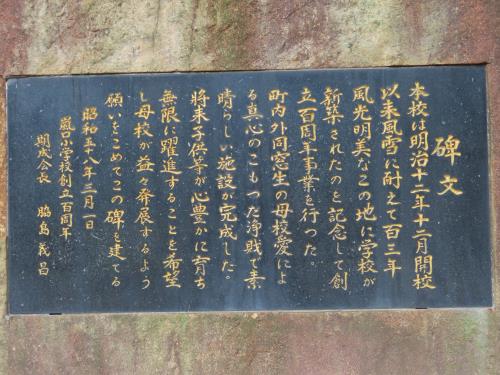 碑文
本校は明治十二年十二月開校
以来風雪に耐えて百三年
風光明美なこの地に学校が
新築されたのを記念して創
立百周年事業を行った。
町内外同窓生の母校愛によ
る真心のこもつた浄財で素
晴らしい施設が完成した。
将来子供等が心豊かに育ち
無限に躍進することを希望
し母校が益々発展するよう
願いをこめてこの碑を建てる
昭和五十八年三月一日
嵐口小学校創立百周年
期成会長 脇島義昌